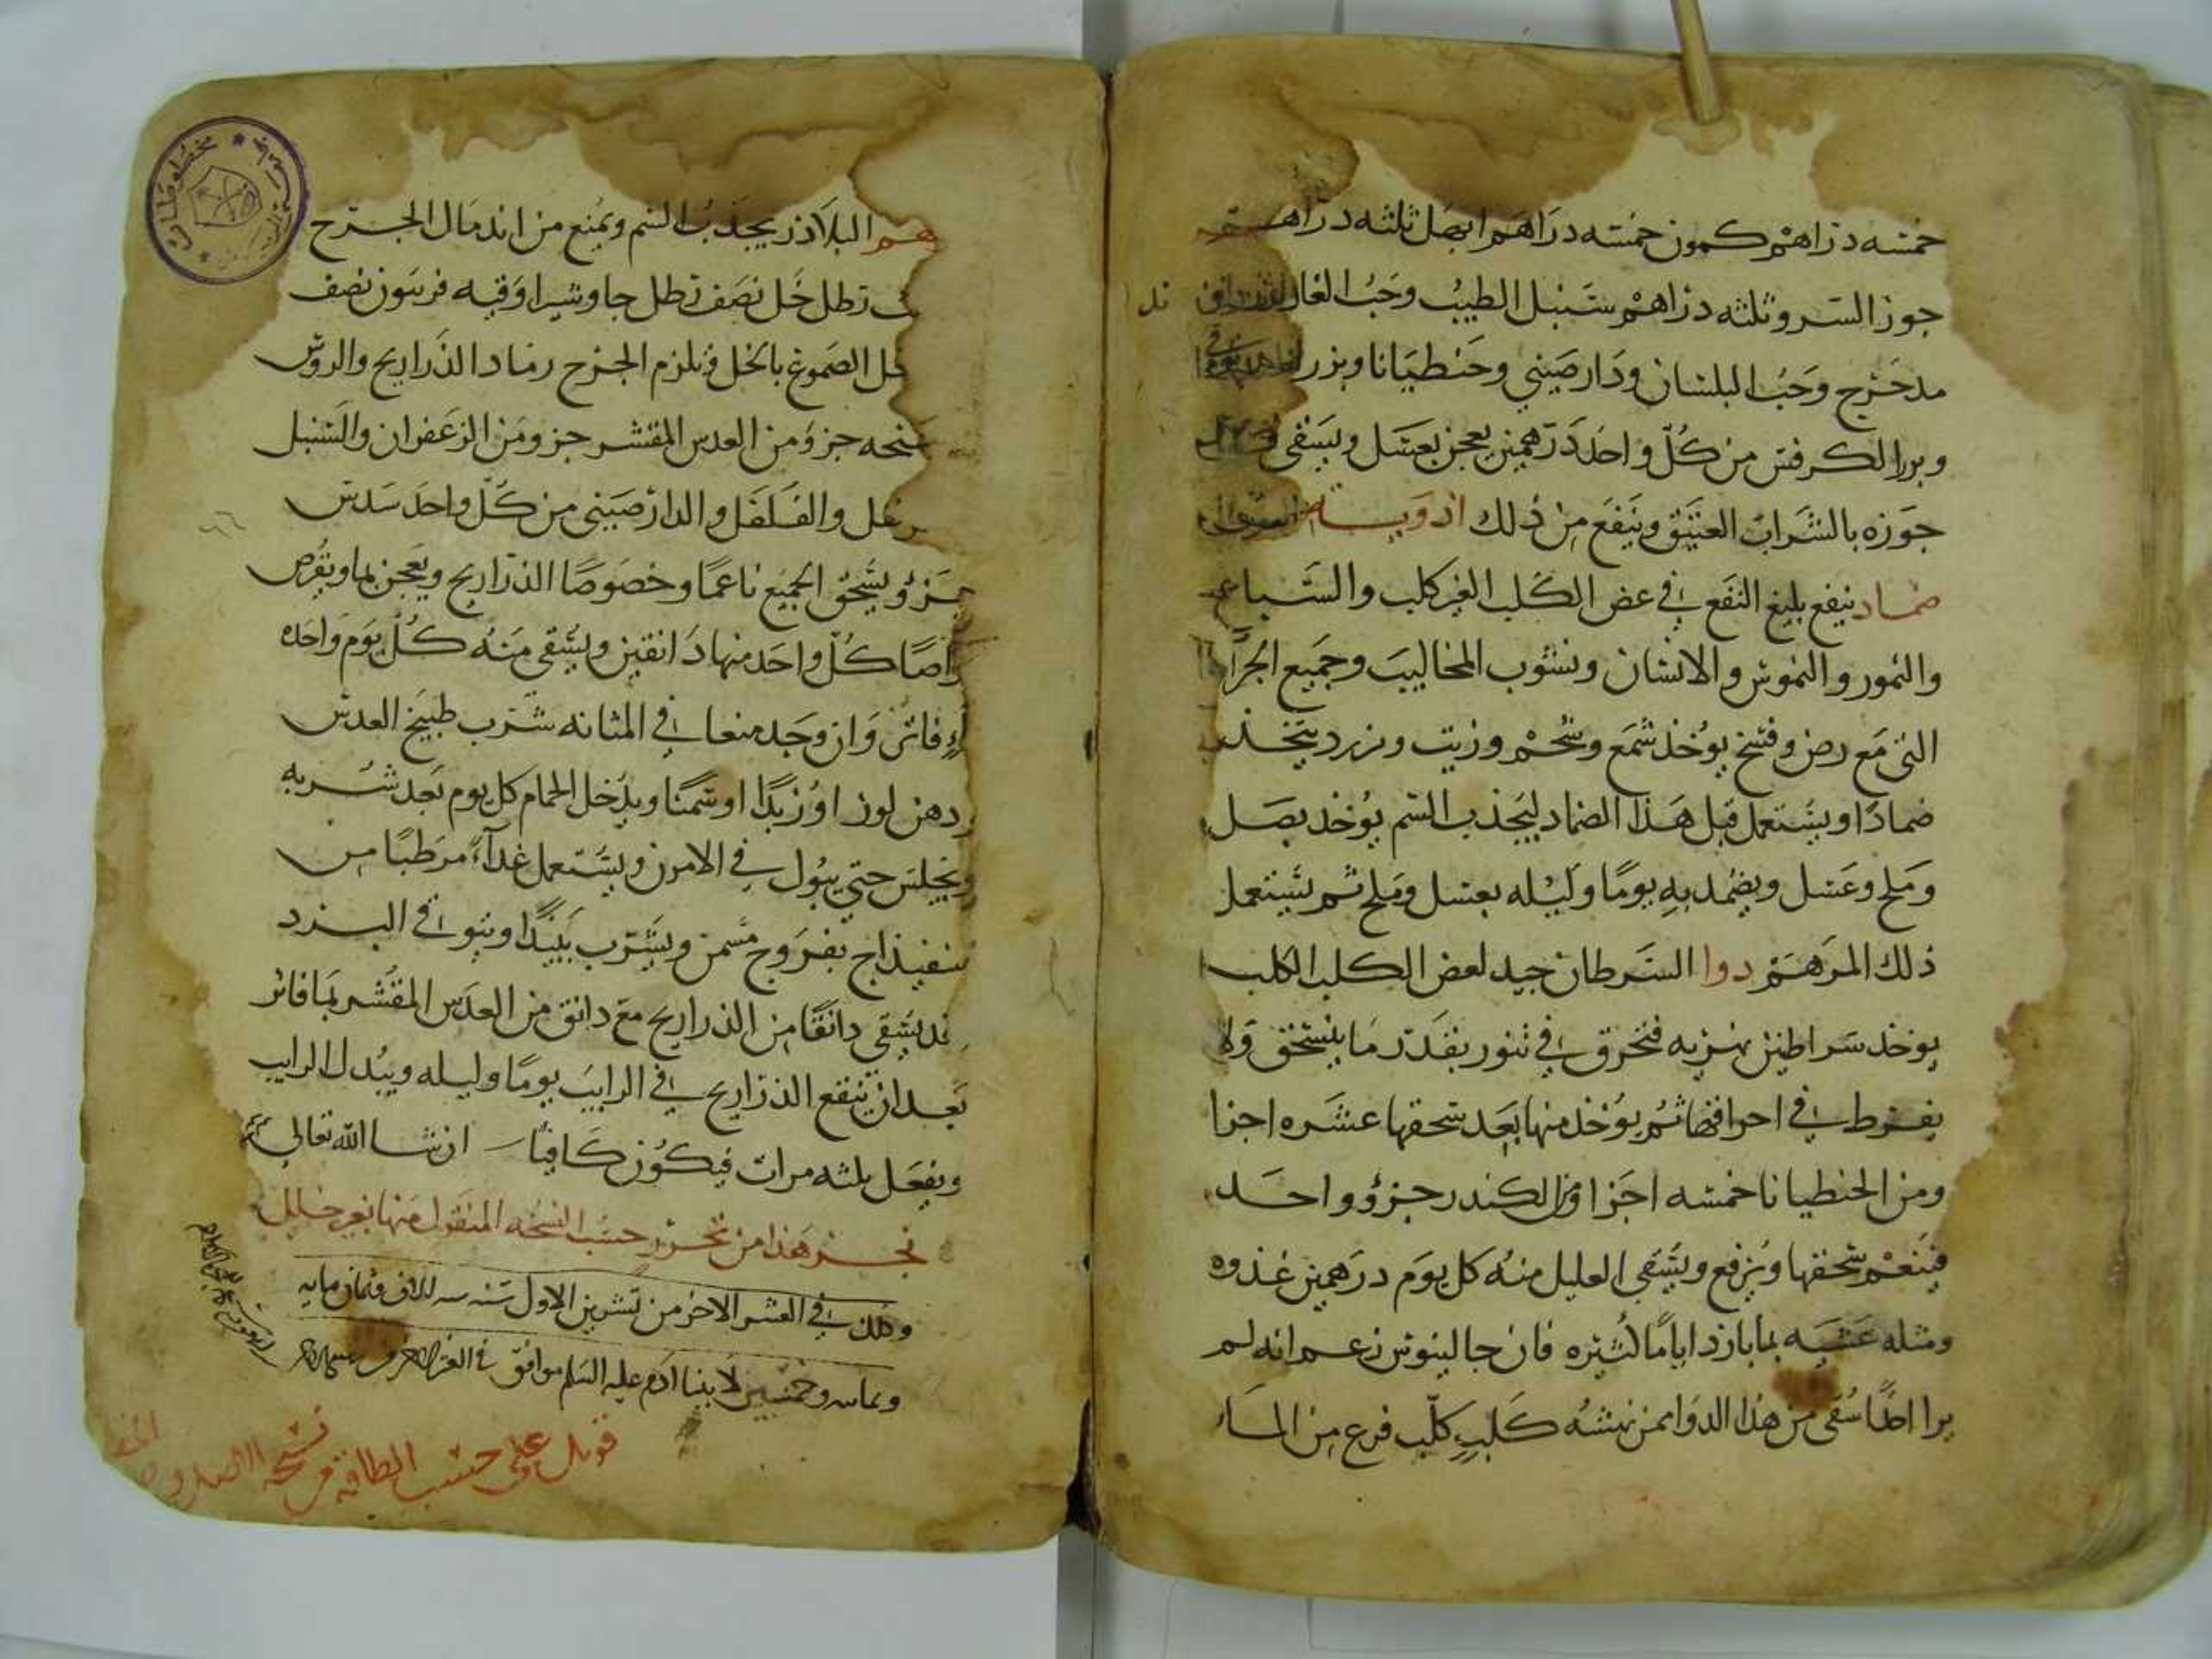 خمسه دراهم كمون خمسه دراهم ابهل ثلثه دراهم
جوز السرو ثلثه دراهم سنبل الطيب وحب الغار
مدحرج وحب البلسان ودارصيني وحنطيانا وبزر
وبزر الكرفس من كل واحد درهمين يعجن بعسل ويسقى
جوزه بالشراب العتيق وينفع من ذلك ادويه
ضماد ينفع بليغ النفع في عض الكلب الغير كلب والسباع
والنمور والنموس والانسان ونشوب المخاليب وجميع الجرا
التي مع رض وفسخ يوخذ شمع وشحم وزيت ويتخذ
ضمادا ويستعمل قبل هذا الضماد ليجذب السم يوخذ بصل
وملح وعسل ويضمد به يوما وليله بعسل وملح ثم يستعمل
ذلك المرهم دوا السرطان جيد لعض الكلب الكلب
يوخذ سراطين نهريه فتحرق في تنور بقدر ما ينسحق ولا
يفرط في احراقها ثم يؤخذ منها بعد سحقها عشره اجزا
ومن الحنطيانا خمسه اجزا ومن الكندر جزؤ واحد
فينعم سحقها ويرفع ويسقى العليل منه كل يوم درهمين غدوه
ومثله عشيه بما بارد اياما كثيره فان جالينوس زعم انه لم
ير احدا سقى من هذا الدوا ممن نهشه كلب كلب فزع من الماء
هم البلاذر يجذب السم ويمنع من اندمال الجرح
رطل خل نصف رطل جاوشير اوقيه فربيون نصف
حل الصموغ بالخل ويلزم الجرح رماد الذراريح والروس
جز ومن العدس المقشر جز ومن الزعفران والسنبل
والفلفل والدارصيني من كل واحد سدس
جزؤ ويسحق الجميع ناعما وخصوصا الذراريح ويعجن بما ويقرص
كل واحد منها دانقين ويسقى منه كل يوم واحده
فاتر وان وجد مغصا في المثانه شرب طبيخ العدس
دهن لوز او زبدا او سمنا ويدخل الحمام كل يوم بعد شربه
ويجلس حتى يبول في الابزن ويستعمل غداء مرطبا من
اسفيذاج بفروج مسمن ويشرب نبيذا ويتوقى البرد
يسقى دانقا من الذراريح مع دانق من العدس المقشر بما فاتر
بعد ان ينقع الذراريح في الرايب يوما وليله ويبدل الرايب
ويفعل ثلثه مرات فيكون كافيا ان شا الله تعالى
نجز هذا من تحرير حسب النسخه المنقول منها بغير خلل
وذلك في العشر الاخر من تشرين الاول سنه
وخمسين لابينا ادم عليه السلم موافق
قوبل على حسب الطاقه من نسخه الاصل